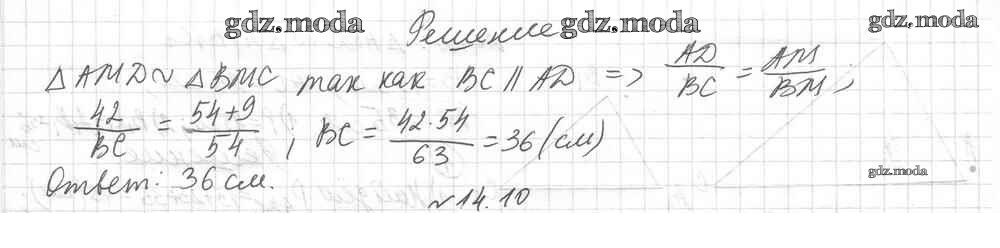 gdz.moda Решение gdz.moda gdz.moda
△AMD ~ △BMC так как BC || AD => AD/BC = AM/BM;
42/BC = 54+9/54; BC = 42·54/63 = 36 (см)
Ответ: 36 см.
gdz.moda
№14.10